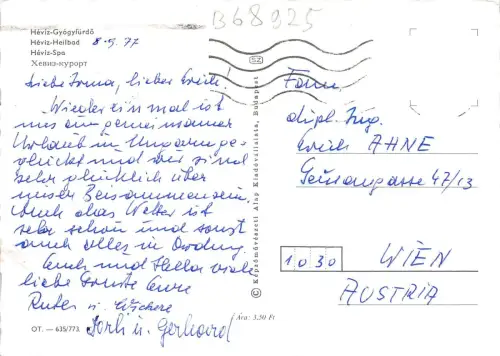 B68925
Hévíz-Gyógyfürdő
Hévíz-Heilbad
Hévíz-Spa
Хевиз-курорт
8-9.77
Liebe Irma, lieber Erich!
Wieder einmal ist
uns ein gemeinsamer
Urlaub in Ungarn ge-
glückt und wir sind
sehr glücklich über
unser Beisammensein.
Auch das Wetter ist
sehr schön und sonst
auch alles in Ordnung.
Euch und Stella viele
liebe Grüsse Eure
u.
Dorli u. Gerhard
OT. — 635/773
Ára: 3,50 Ft
SZ
Képzőművészeti Alap Kiadóvállalata, Budapest
Fam.
dipl. Ing.
Erich AHNE
47/13
1030
WIEN
AUSTRIA